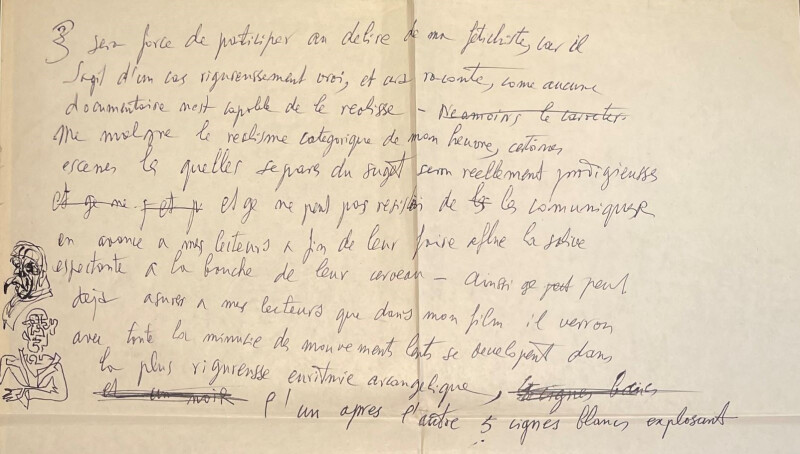 sera forcé de participer au delire de ma fetichiste, car il
sagit d'un cas rigureussement vrai, et axi raconte, come aucune
documentaire nest capable de le realisse – Neamoins le caracter
me malgre le realisme categorique de mon heuvre, certines
escenes les quelles separes du suget seron reellement prodigieusses
et ge ne et et ge ne peut pas resister de les comuniquer
en avance a mes lecteurs a fin de leur faire aflue la salive
espectante a la bouche de leur cerveau – Ainssi ge peut peut
deja asurer a mes lecteurs que dans mon film il verron
avec toute la minutie de mouvements lents se developent dans
la plus rigureusse euritmie arcangelique, cignes blancs
et un noir l'un apres l'autre 5 cignes blancs explosant